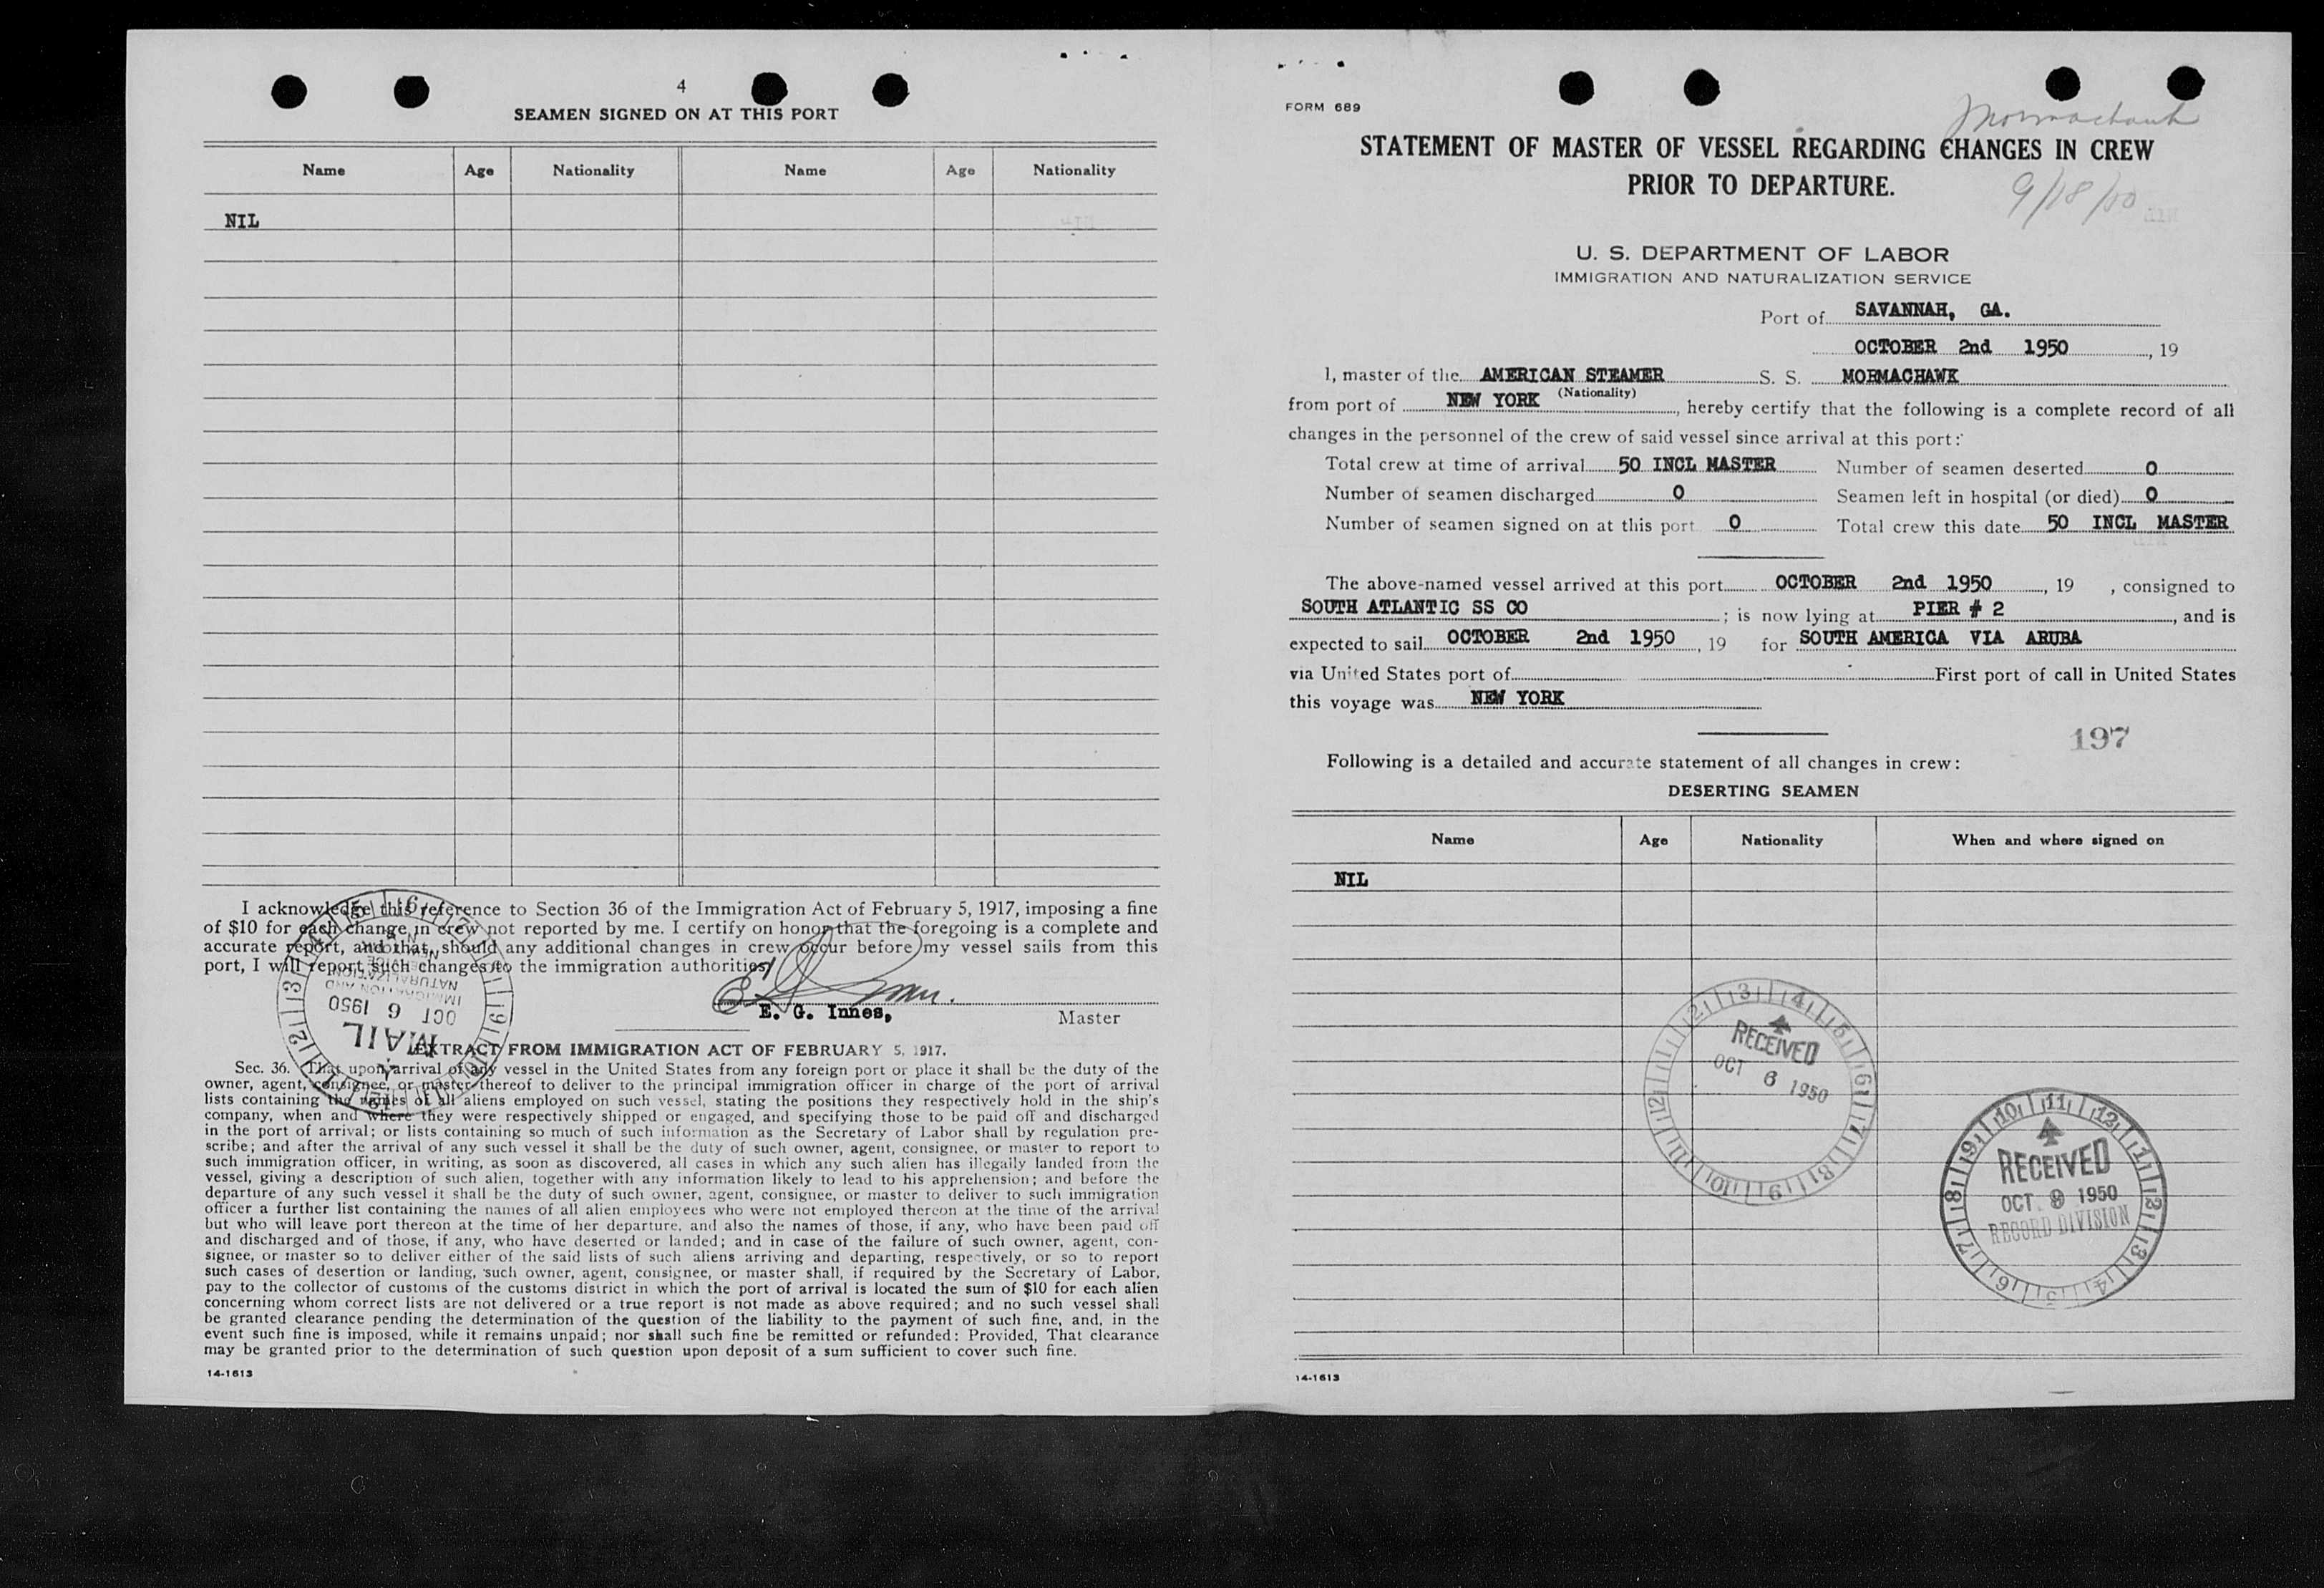 4
SEAMEN SIGNED ON AT THIS PORT
Name Age Nationality Name Age Nationality
NIL
I acknowledge this reference to Section 36 of the Immigration Act of February 5, 1917, imposing a fine
of $10 for each change in crew not reported by me. I certify on honor that the foregoing is a complete and
accurate report, and that, should any additional changes in crew occur before my vessel sails from this
port, I will report such changes to the immigration authorities.
E. G. Innes,
Master
MAIL
OCT 6 1950
IMMIGRATION AND
NATURALIZATION
SERVICE
NEW YORK
EXTRACT FROM IMMIGRATION ACT OF FEBRUARY 5, 1917.
Sec. 36. That upon arrival of any vessel in the United States from any foreign port or place it shall be the duty of the
owner, agent, consignee, or master thereof to deliver to the principal immigration officer in charge of the port of arrival
lists containing the names of all aliens employed on such vessel, stating the positions they respectively hold in the ship's
company, when and where they were respectively shipped or engaged, and specifying those to be paid off and discharged
in the port of arrival; or lists containing so much of such information as the Secretary of Labor shall by regulation pre-
scribe; and after the arrival of any such vessel it shall be the duty of such owner, agent, consignee, or master to report to
such immigration officer, in writing, as soon as discovered, all cases in which any such alien has illegally landed from the
vessel, giving a description of such alien, together with any information likely to lead to his apprehension; and before the
departure of any such vessel it shall be the duty of such owner, agent, consignee, or master to deliver to such immigration
officer a further list containing the names of all alien employees who were not employed thereon at the time of the arrival
but who will leave port thereon at the time of her departure, and also the names of those, if any, who have been paid off
and discharged and of those, if any, who have deserted or landed; and in case of the failure of such owner, agent, con-
signee, or master so to deliver either of the said lists of such aliens arriving and departing, respectively, or so to report
such cases of desertion or landing, such owner, agent, consignee, or master shall, if required by the Secretary of Labor,
pay to the collector of customs of the customs district in which the port of arrival is located the sum of $10 for each alien
concerning whom correct lists are not delivered or a true report is not made as above required; and no such vessel shall
be granted clearance pending the determination of the question of the liability to the payment of such fine, and, in the
event such fine is imposed, while it remains unpaid; nor shall such fine be remitted or refunded: Provided, That clearance
may be granted prior to the determination of such question upon deposit of a sum sufficient to cover such fine.
14-1613
FORM 689
Mormachawk
STATEMENT OF MASTER OF VESSEL REGARDING CHANGES IN CREW
PRIOR TO DEPARTURE.
9/18/50
U. S. DEPARTMENT OF LABOR
IMMIGRATION AND NATURALIZATION SERVICE
Port of SAVANNAH, GA.
OCTOBER 2nd 1950, 19
I, master of the AMERICAN STEAMER S. S. MORMACHAWK
(Nationality)
from port of NEW YORK, hereby certify that the following is a complete record of all
changes in the personnel of the crew of said vessel since arrival at this port:
Total crew at time of arrival 50 INCL MASTER Number of seamen deserted 0
Number of seamen discharged 0 Seamen left in hospital (or died) 0
Number of seamen signed on at this port 0 Total crew this date 50 INCL MASTER
The above-named vessel arrived at this port OCTOBER 2nd 1950, 19 , consigned to
SOUTH ATLANTIC SS CO; is now lying at PIER # 2, and is
expected to sail OCTOBER 2nd 1950, 19 for SOUTH AMERICA VIA ARUBA
via United States port of First port of call in United States
this voyage was NEW YORK
197
Following is a detailed and accurate statement of all changes in crew:
DESERTING SEAMEN
Name Age Nationality When and where signed on
NIL
RECEIVED
OCT 6 1950
RECEIVED
OCT. 9 1950
RECORD DIVISION
14-1613